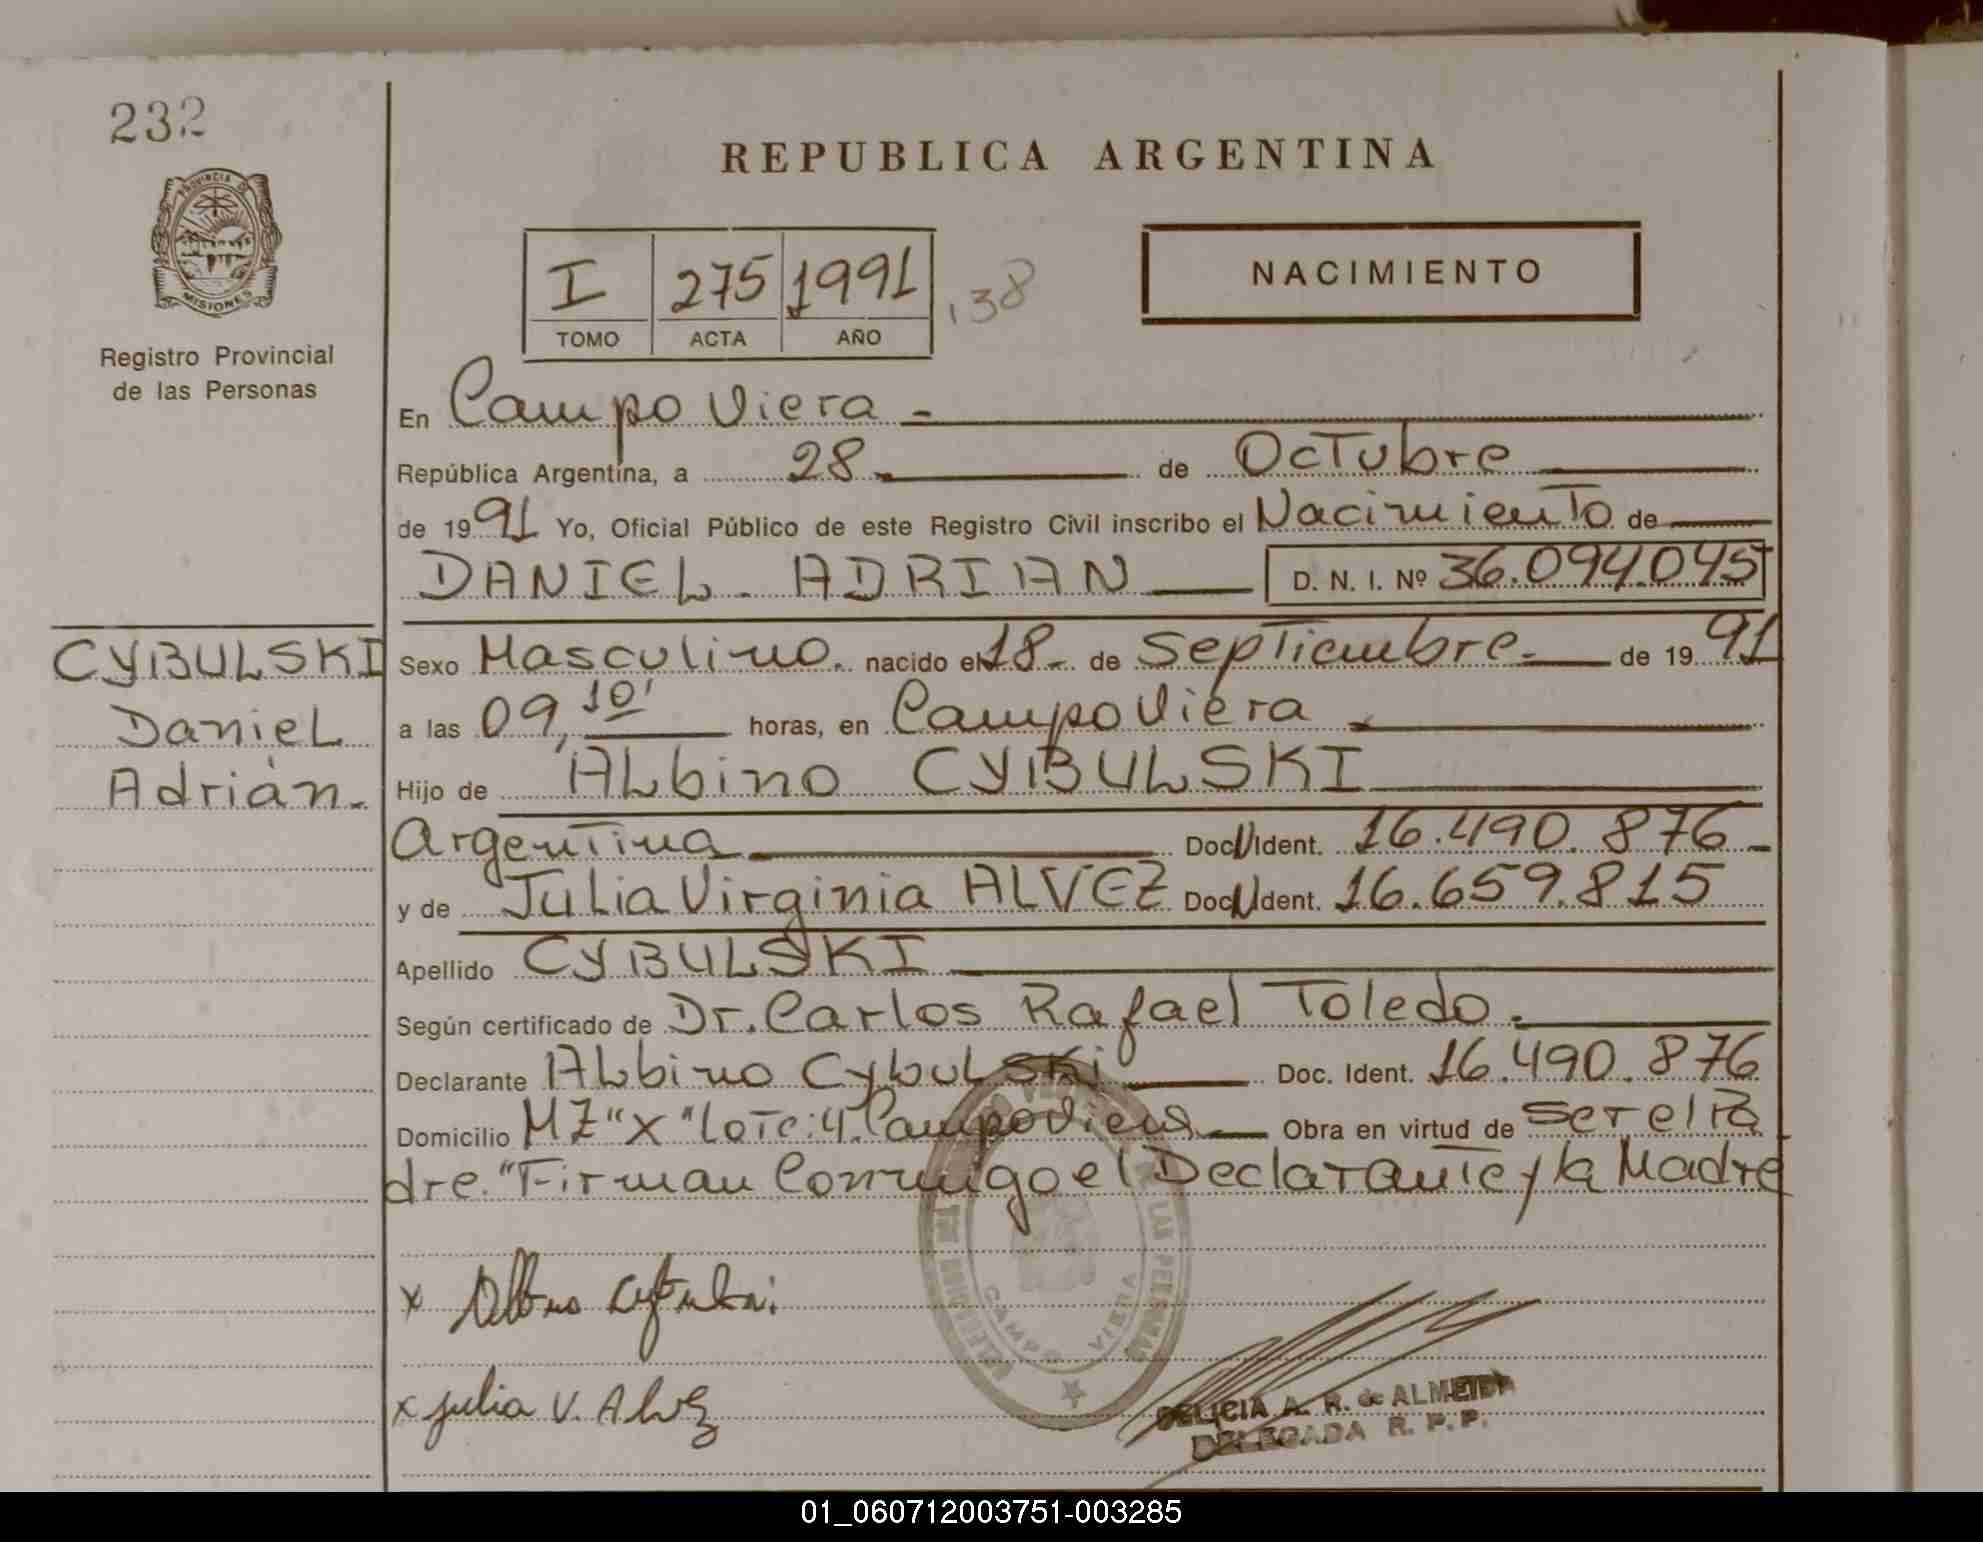 232
REPUBLICA ARGENTINA
PROVINCIA DE
MISIONES
Registro Provincial
de las Personas
I 275 1991 138
TOMO ACTA AÑO
NACIMIENTO
En Campo Viera -
República Argentina, a 28 de Octubre
de 1991 Yo, Oficial Público de este Registro Civil inscribo el Nacimiento de
DANIEL ADRIAN D. N. I. Nº 36.094.045
CYBULSKI
Daniel
Adrián.
Sexo Masculino. nacido el 18 de Septiembre. de 1991
a las 09,10' horas, en Campo Viera
Hijo de Albino CYBULSKI
Argentina Doc. N. Ident. 16.490.876
y de Julia Virginia ALVEZ Doc. N. Ident. 16.659.815
Apellido CYBULSKI
Según certificado de Dr. Carlos Rafael Toledo.
Declarante Albino Cybulski Doc. Ident. 16.490.876
Domicilio MZ "X" Lote: 4. Campo Viera Obra en virtud de ser el Pa
dre. "Firman Conmigo el Declarante y la Madre
x Albino Cybulski
x Julia V. Alvez
LAS PERSONAS
CAMPO VIERA
DELICIA A. R. de ALMEIDA
DELEGADA R. P. P.
01_060712003751-003285